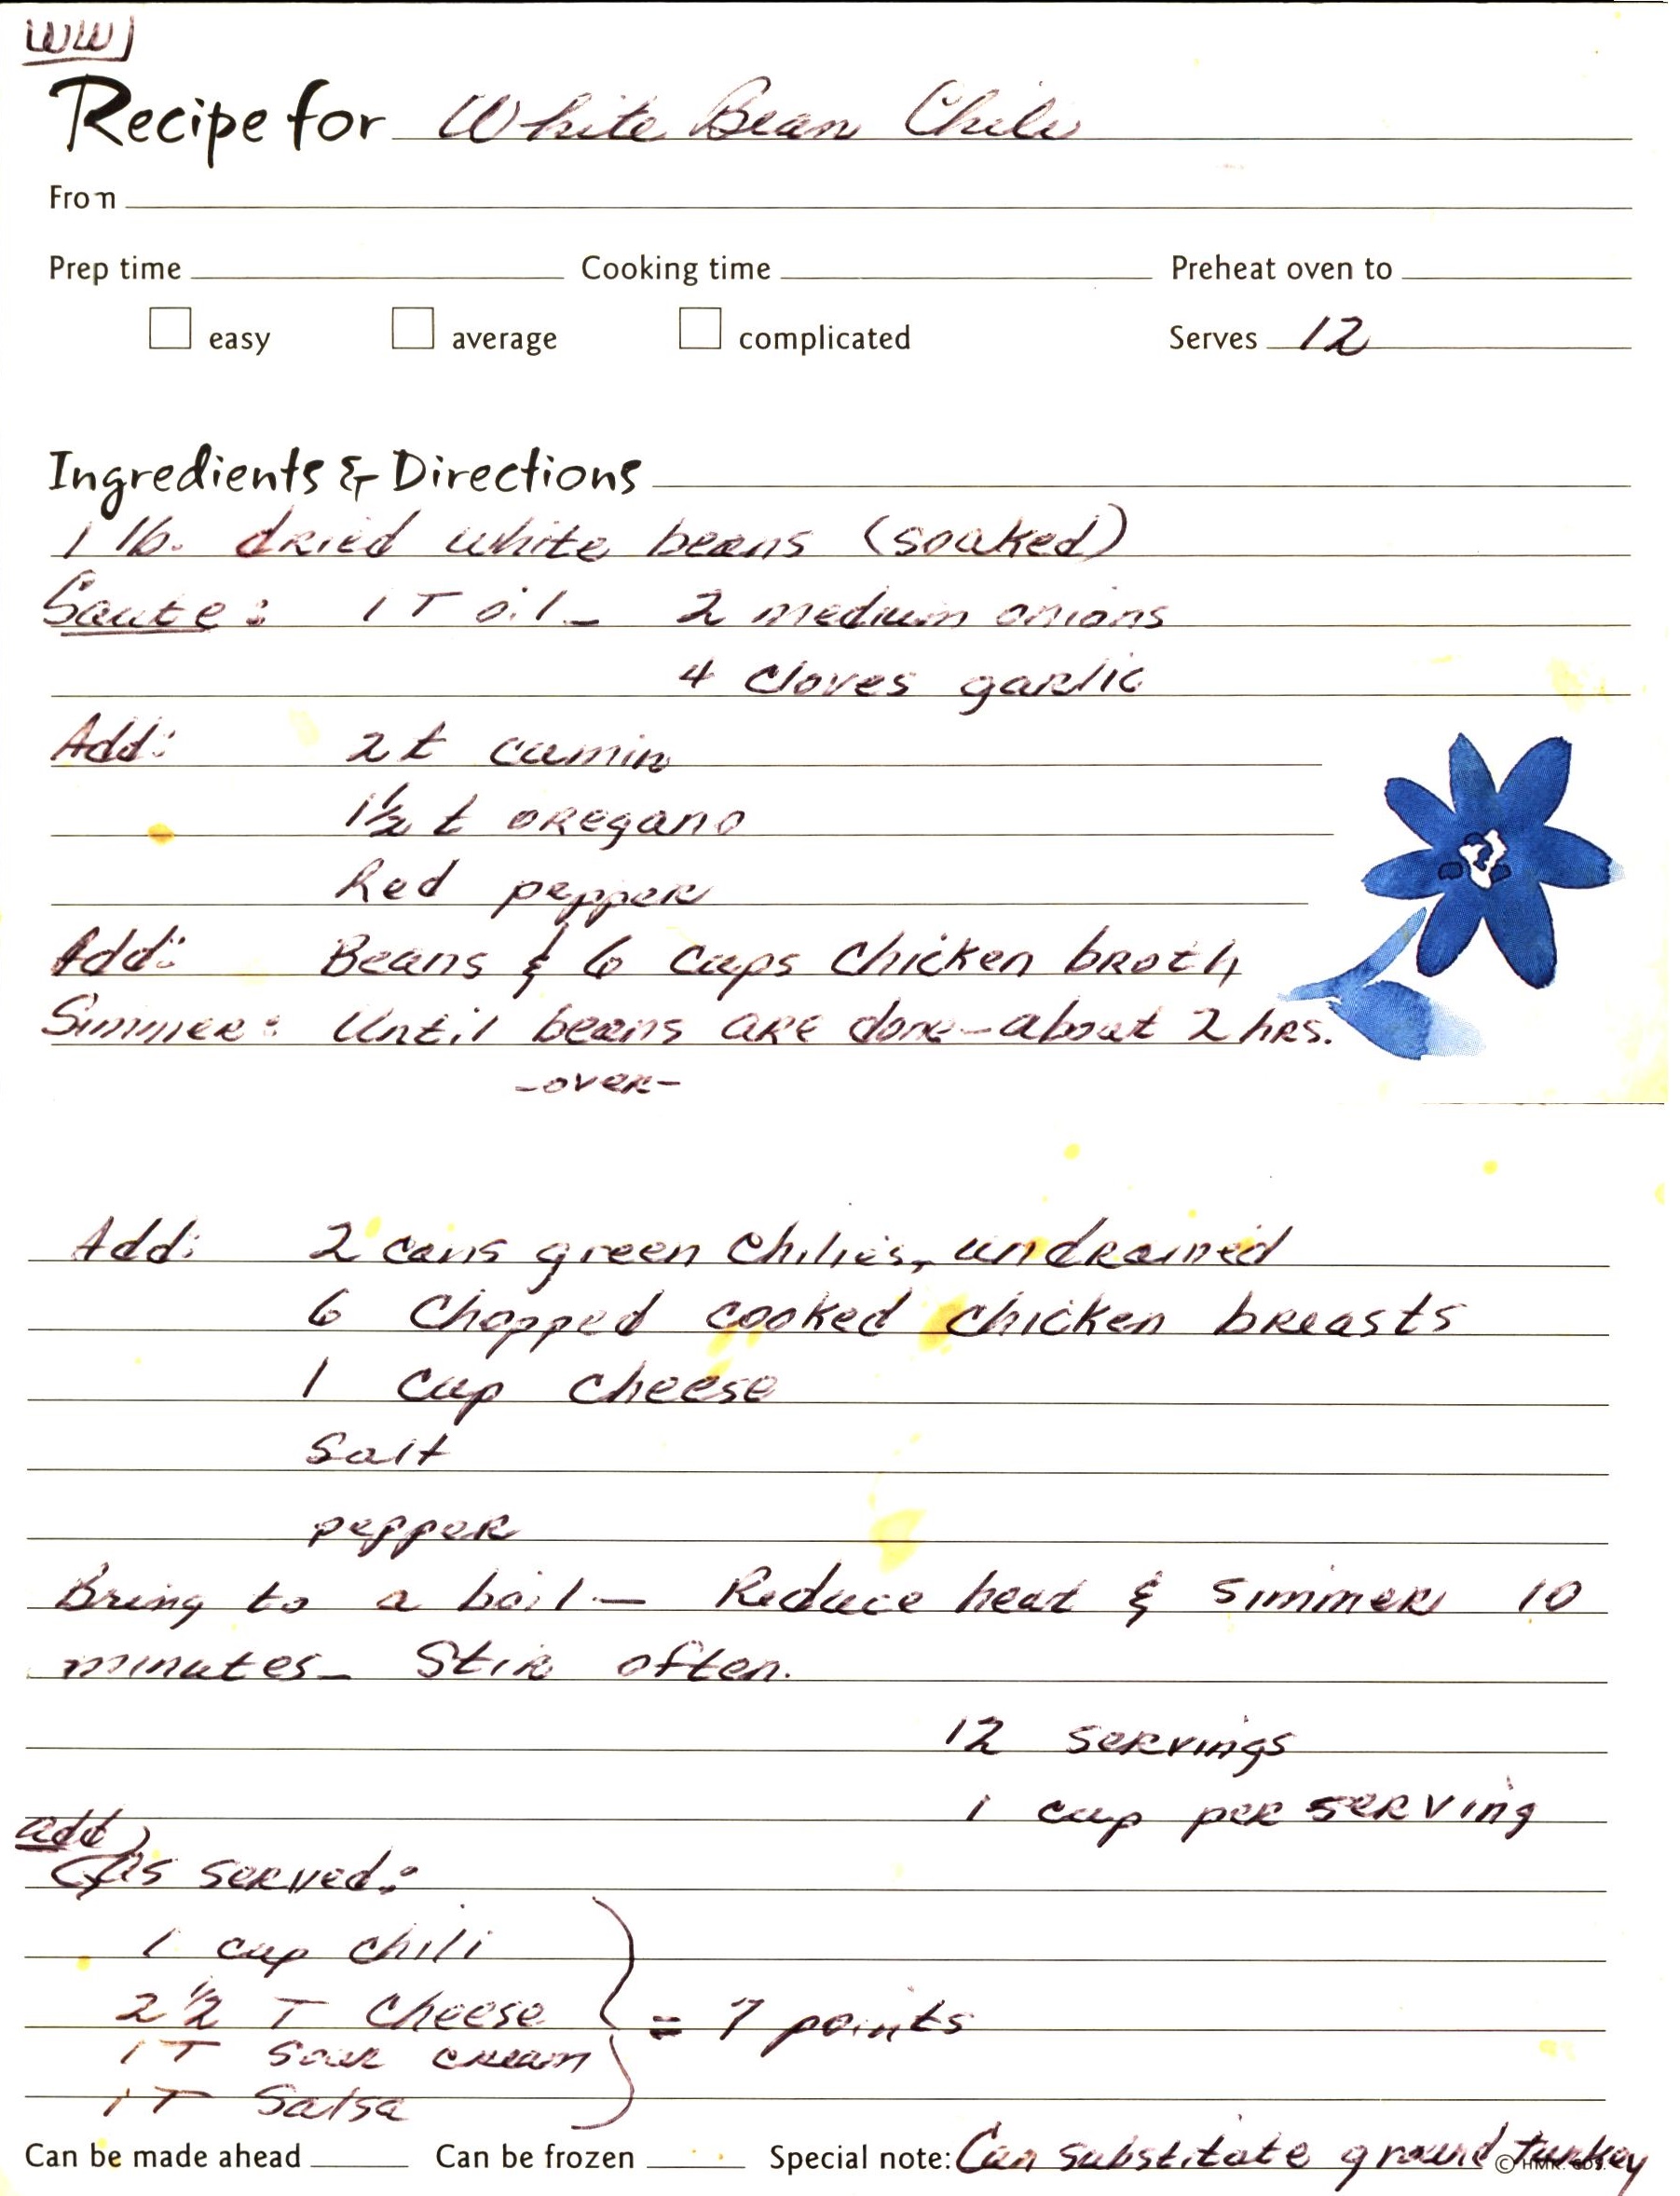 WW
Recipe for White Bean Chili
From
Prep time Cooking time Preheat oven to
easy average complicated Serves 12
Ingredients & Directions
1 lb. dried white beans (soaked)
Saute: 1 T oil - 2 medium onions
4 cloves garlic
Add: 2 t cumin
1½ t oregano
Red pepper
Add: Beans & 6 cups chicken broth
Simmer: Until beans are done - about 2 hrs.
-over-
Add: 2 cans green chilies, undrained
6 Chopped cooked chicken breasts
1 cup cheese
Salt
pepper
Bring to a boil - Reduce heat & simmer 10
minutes - Stir often.
12 servings
1 cup per serving
add
As served:
1 cup chili
2½ T cheese = 7 points
1 T sour cream
1 T Salsa
Can be made ahead Can be frozen Special note: Can substitute ground turkey
© HMK. CDS.